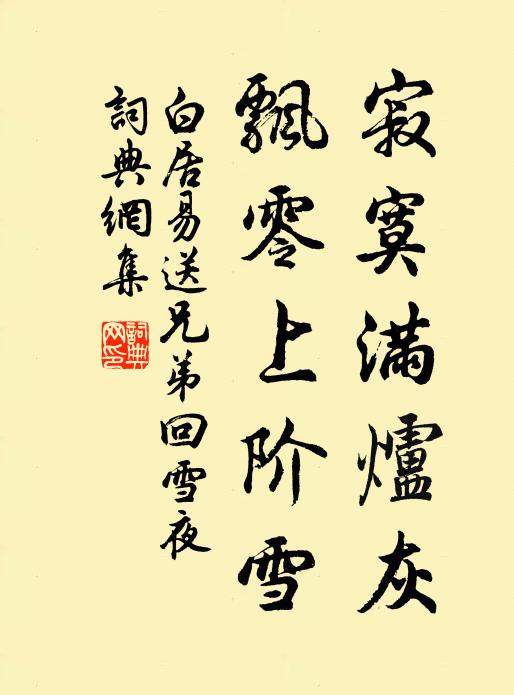 寂寞满爐灰
飘零上阶雪
白居易送兄弟回雪夜
詞典網集
詞典网印